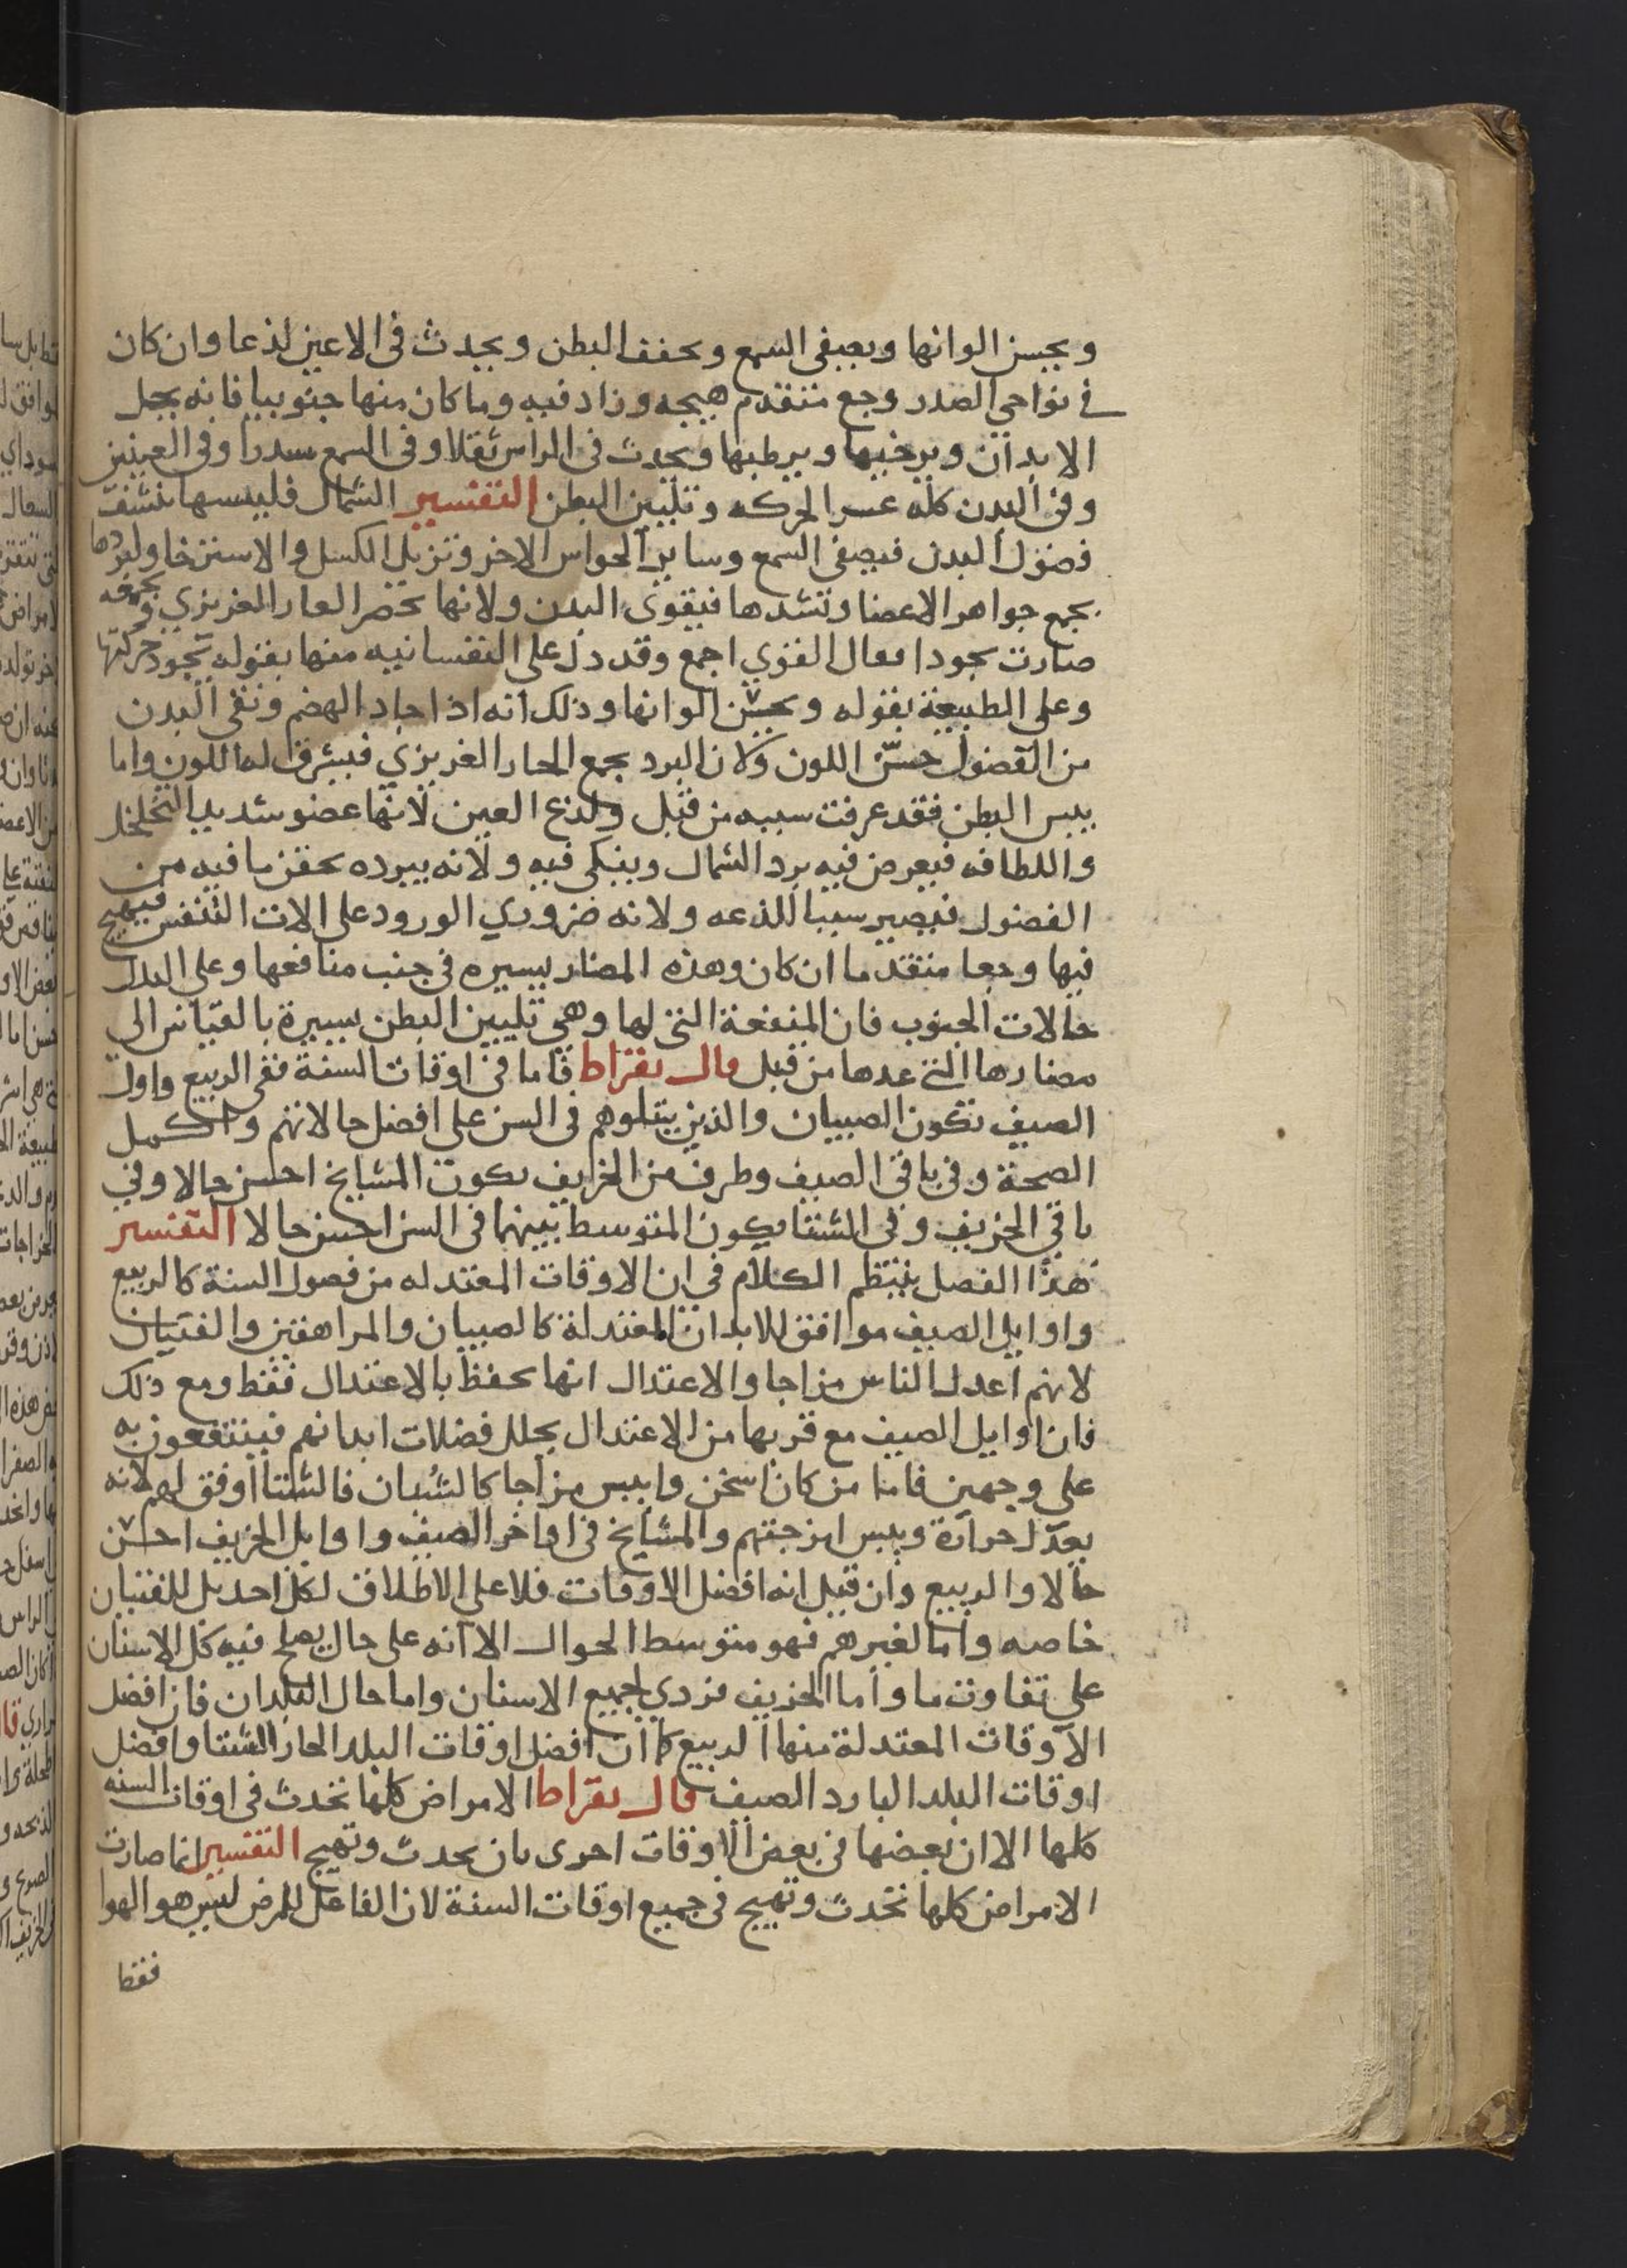 ويحسن الوانها ويصفى السمع ويجفف البطن ويحدث فى الاعين لذعا وان كان
فى نواحي الصدر وجع متقدم هيجه وزاد فيه وما كان منها جنوبيا فانه يحل
الابدان ويرخيها ويرطبها ويحدث فى الراس ثقلا وفى السمع سدرا وفى العينين
وفى البدن كله عسر الحركه وتليين البطن التفسير الشمال فليبسها تنشف
فضول البدن فيصفى السمع وساير الحواس الاخر وتزيل الكسل والاسترخا ولبردها
يجمع جواهر الاعضا وتشدها فيقوى البدن ولانها تحصر الحار الغريزي وتجمعه
صارت تجود افعال القوي اجمع وقد دل على النفسانيه منها بقوله تجود حركتها
وعلى الطبيعة بقوله ويحسن الوانها وذلك انه اذا جاد الهضم ونقى البدن
من الفضول حسن اللون ولان البرد يجمع الحار الغريزي فيشرق له اللون واما
يبس البطن فقد عرفت سببه من قبل ولذع العين لانها عضو شديد التخلخل
واللطافه فيعرض فيه برد الشمال وينكي فيه ولانه ببرده يحقن ما فيه من
الفضول فيصير سببا للذعه ولانه ضروري الورود على الات التنفس فيهيج
فيها وجعا متقدما ان كان وهذه المضار يسيره في جنب منافعها وعلى البدل
حالات الجنوب فان المنفعة التى لها وهي تليين البطن يسيرة بالقياس الى
مضارها التى عدها من قبل قال بقراط فاما فى اوقات السنة ففى الربيع واول
الصيف تكون الصبيان والذين يتلوهم فى السن على افضل حالاتهم واكمل
الصحة وفى باقى الصيف وطرف من الخريف يكون المشايخ احسن حالا وفي
باقي الخريف وفى الشتا يكون المتوسط بينهما فى السن احسن حالا التفسير
هذا الفصل ينتظم الكلام فى ان الاوقات المعتدله من فصول السنة كالربيع
واوايل الصيف موافق للابدان المعتدلة كالصبيان والمراهقين والفتيان
لانهم اعدل الناس مزاجا والاعتدال انما يحفظ بالاعتدال فقط ومع ذلك
فان اوايل الصيف مع قربها من الاعتدال يحلل فضلات ابدانهم فينتفعون به
على وجهين فاما من كان اسخن وايبس مزاجا كالشبان فالشتا اوفق لهم لانه
يعدل حرارة ويبس امزجتهم والمشايخ فى اواخر الصيف واوايل الخريف احسن
حالا والربيع وان قيل انه افضل الاوقات فلا على الاطلاق لكل احد بل للفتيان
خاصه واما لغيرهم فهو متوسط الحوال الا انه على حال يصلح فيه كل الاسنان
على تفاوت ما واما الخريف فردي لجميع الاسنان واما حال البلدان فان افضل
الاوقات المعتدلة منها الربيع كما ان افضل اوقات البلد الحار الشتا وافضل
اوقات البلد البارد الصيف قال بقراط الامراض كلها تحدث فى اوقات السنه
كلها الا ان بعضها فى بعض الاوقات احرى بان يحدث وتهيج التفسير انما صارت
الامراض كلها تحدث وتهيج فى جميع اوقات السنة لان الفاعل للمرض ليس هو الهوا
فقط